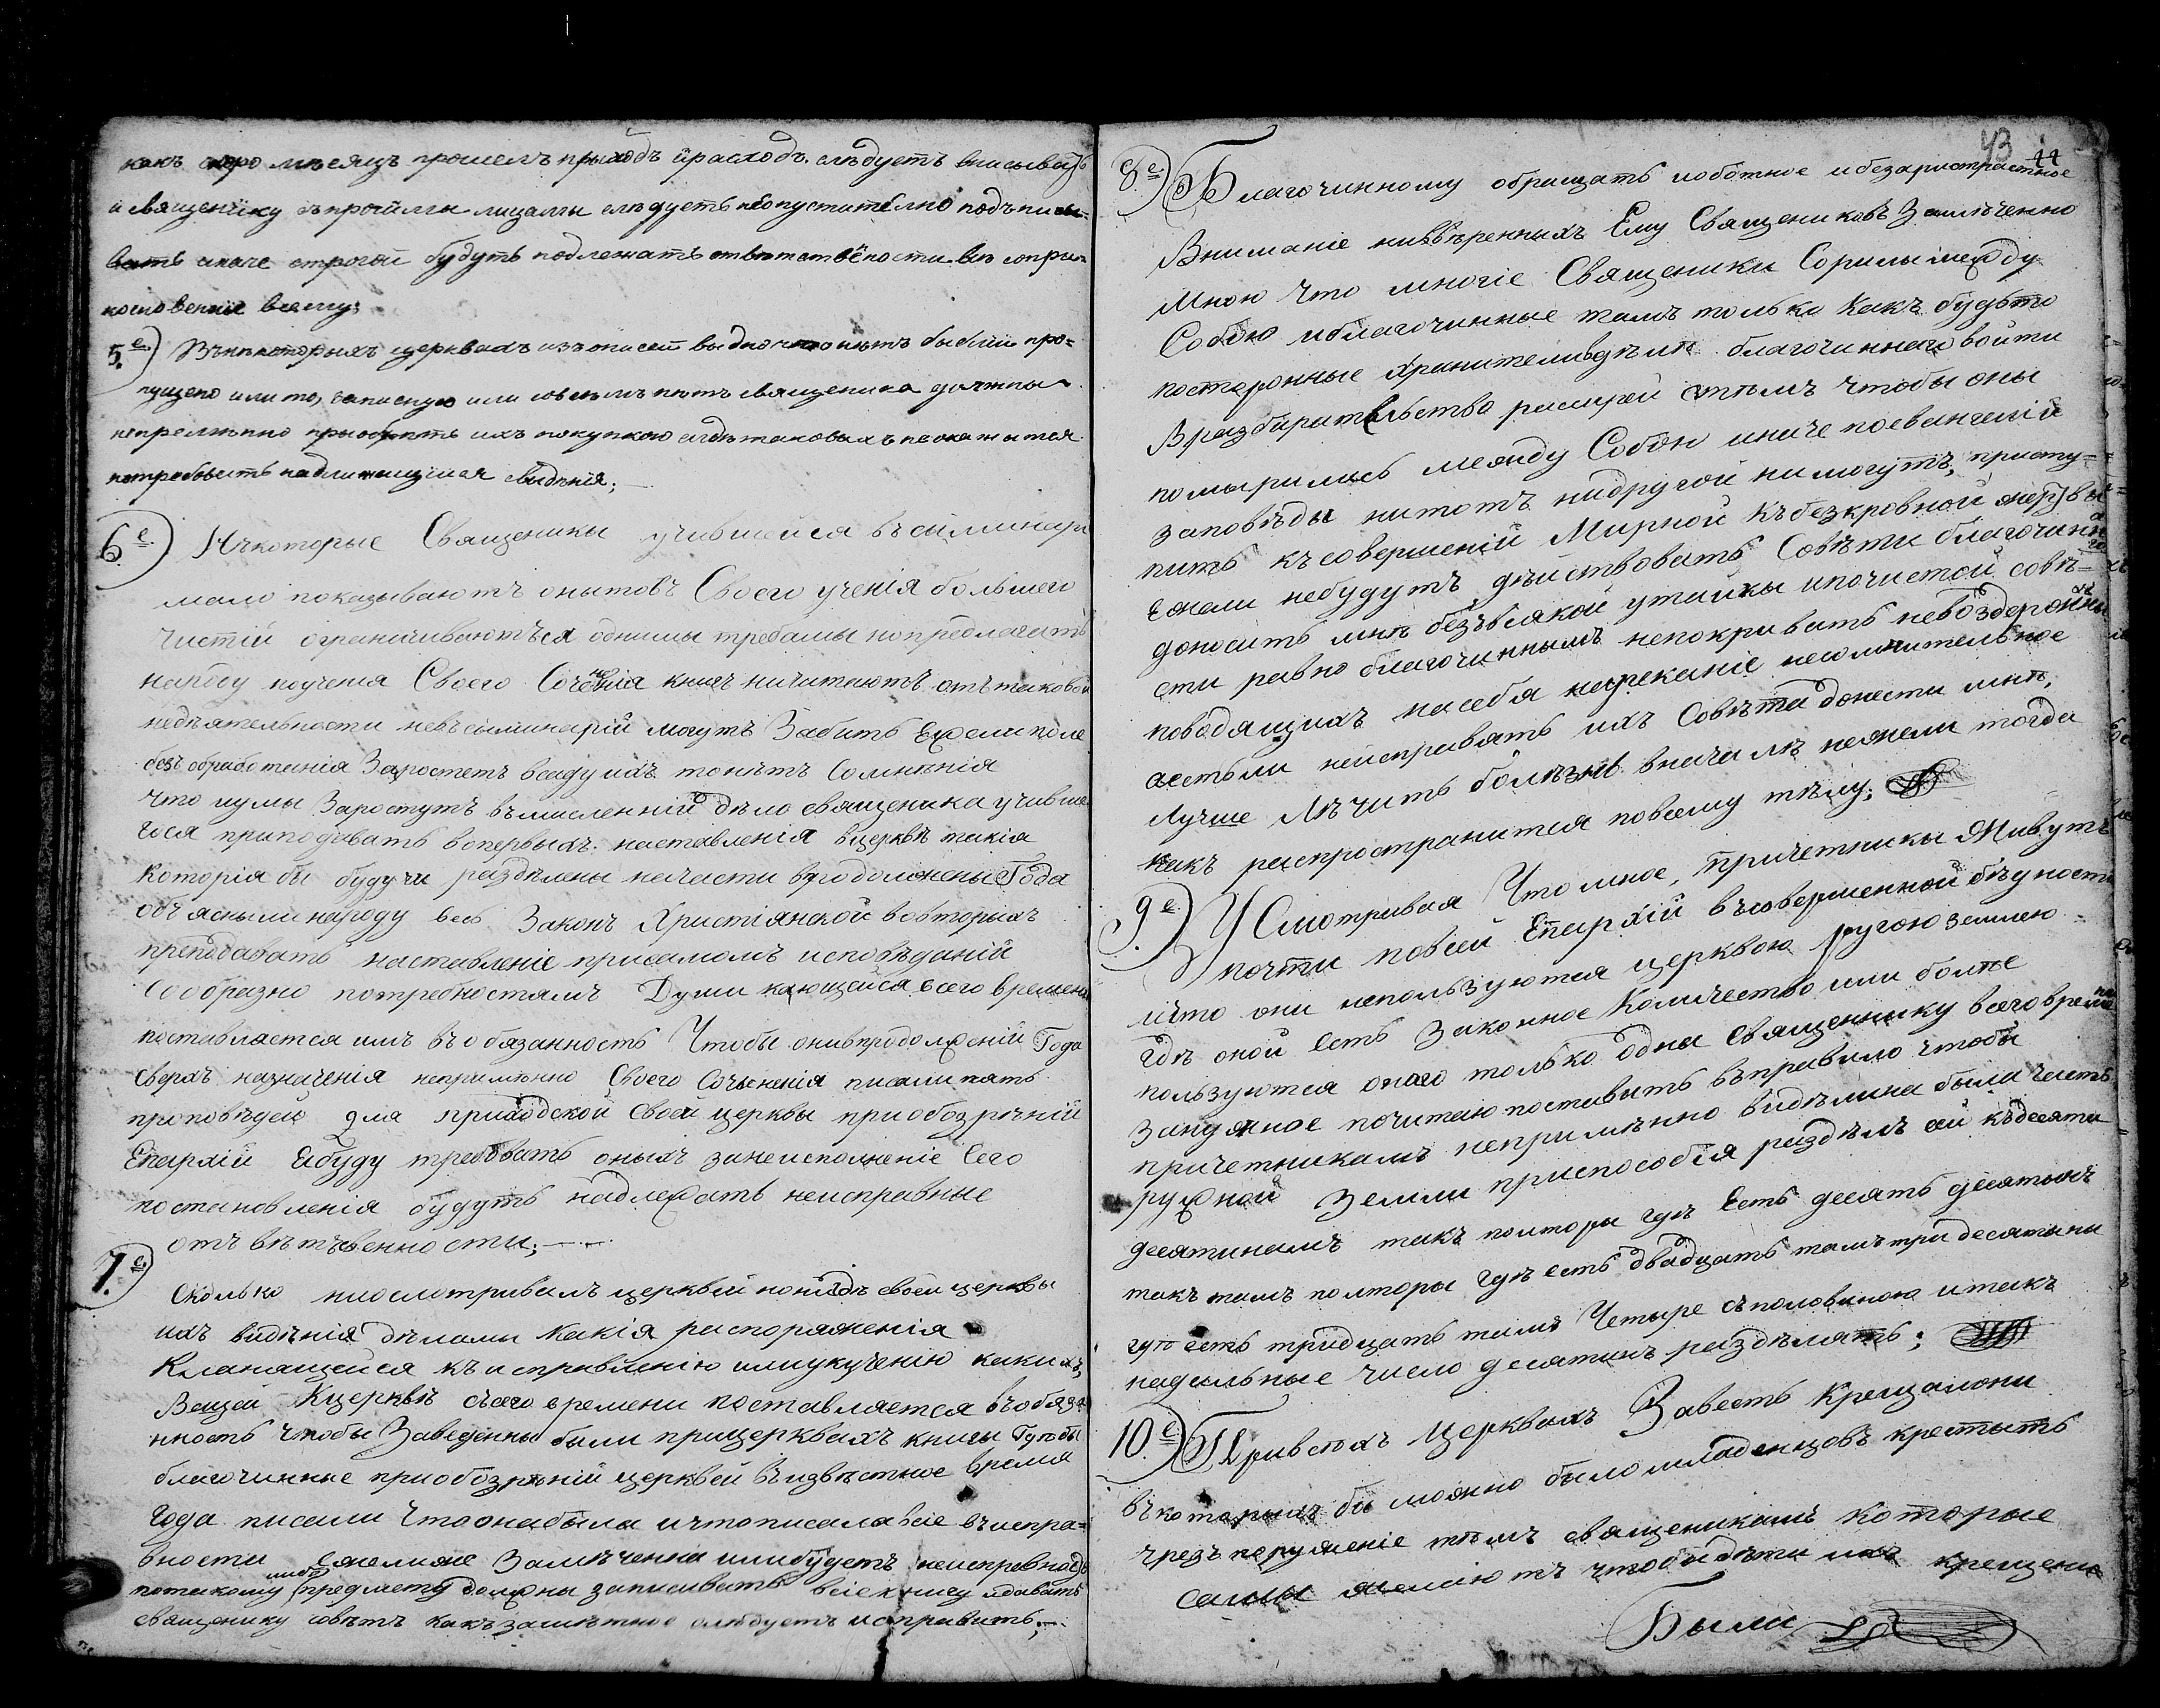 какъ скоро мѣсяцъ пройшелъ прыходъ ирасходъ. слѣдуетъ вписывать
и священику съпротчими лицамы слѣдуетъ неопустително подъписы-
вать иначе строгой будутъ подлежатъ отвѣтствености въ сопри-
косновенiе всему;
5.е) Внѣкоторыхъ церквахъ изъписей выдно что нѣтъ быблiи про=
пущено или то, записную или совсѣмъ нѣтъ священика должны
непремѣнно прыобрѣтъ ихъ покупкою агдѣ таковыхъ не окажытся
потребовать надлижащiмся видѣнiя;
6.е) Нѣкоторые Священики учившейся въ сыминари
мало показываютъ опытовъ Своего ученiя большего
чистiй ограничиваютъся однимы требамы нопредлагать
народу поученiя Своего Соченiя книгъ ничитаютъ отътаковой
недѣятельности невъсыминарiй могутъ Забить Ежели поле
безъ обработанiя Заростетъ всаду ихъ то нѣтъ Сомнѣнiя
что иумы Заростутъ въмисленнiй дѣло священика учивше
гося приподавать вопервыхъ наставленiя вцерквѣ такiя
Которiя бы будучи раздѣлены начасти впродолжены Года
обясныли народу весь Законъ Христiянской вовторыхъ
преподавать наставленiе присамомъ исповѣданiй
Сообразно потребностямъ Души кающейся всего времени
поставляется имъ въ обязанность Чтобы онивпродолженiй Года
сверхъ назначенiя непримѣнно Своего Сочыненiя писали пять
проповѣдей для приходской своей церквы приобозрѣнiй
Епархiй Ябуду требовать оныхъ занеисполненiе Сего
постановленiя будутъ надлежать неисправные
отъ вѣтъвенности;
7.е) Сколько ниосмотривалъ церквей нониѓдѣ своей церквы
ихъ видѣнiя дѣламы Какiя распоряженiя
Кланящейся къ исправленiю илиукученiю какихъ
Вещей Кцерквѣ съего времени поставляется въобяза
нность Чтобы Заведенны были прицерквахъ книгы Гдѣбы
благочинные приобозрѣнiй церквей въизвѣстное время
Года писали Чтоонабыла ичтописала все въ испра=
вности Ежелиже Замѣченна илибудетъ неисправность
потакому либо предмету должны записывать все книгу ядавать
священику совѣтъ какъ замѣтное слѣдуетъ исправить;
43 44
8.е) Благочинному обращать особтное ибезаристрастное
Вниманiе навверенныхъ Ему Священиковъ Замѣченно
Мною что многiе Священики Сорилы между
Собою иблагочинные тамъ только Какъ будьто
посторонные Хранители благочиннаго войти
Вразбирательство распрей стѣмъ чтобы оны
помырились между Собою иначе поеванчелiй
заповѣды нитотъ нидругой ни могутъ присту=
пить къ совершенiй Мирной къ безкровной жертвы
Ежели небудутъ дѣйствовать Совѣты благочиннаго
доносить мнѣ безъвсякой утайки ипочистой совѣ=
сти равно благочиннымъ непокривать невоздержны
поводящихъ насебя нареканiе несомнительное
аестьли неисправять ихъ Совѣты донести мнѣ,
Лучше Лѣчить болѣзнь вначалѣ нежели тогда
какъ распространится повсему тѣлу;
9.е) УСмотривая Что мное, Причетникы Живутъ
почти повсей Епархiй въсовершенной бѣдности
ичто они непользуются церквою ругою землею
Гдѣ оной есть Законное Количество или болѣе
пользуются онаго только одны священнику всего времени
занужное почитаю поставить въправило чтобы
причетникамъ непримѣнно видѣлина была часть
ружной Земли приспособiя раздѣлъ ей къдесяти
десятинамъ такъ полторы гдѣ Есть десять десятынъ
такъ тамъ полторы Гдѣ есть двадцать тамъ три десятыны
гдѣ есть тридцать тамъ Четыре съполовиною итакъ
надильные число десятинъ раздѣлять;
10.е) Привсѣхъ Церквахъ Завесть Крещалони
въкоторихъ бы можно было младенцовъ крестыть
чрезъ погруженiе тѣмъ священикамъ которые
самы желаютъ чтобыдѣти ихъ крещены
Были